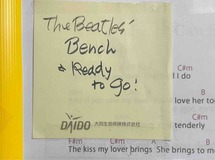 The Beatles'
Bench
& Ready
to go!
DAIDO 大同生命保険株式会社
C#m
I do
B
love her too
C#m
tenderly
F#m B
The kiss my lover brings She brings to me